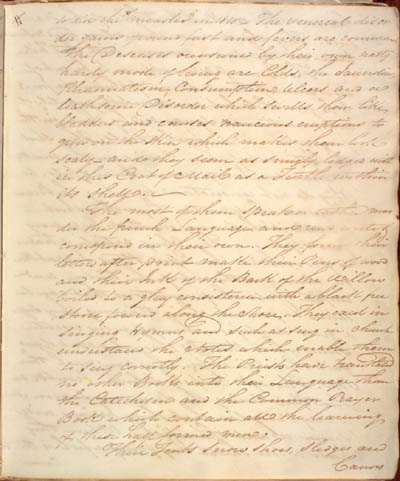 within this Monastic in 1810. The venereal disor
der gains ground fast and fevers are common
The Diseases occasioned by their own nasty
hardy mode of living are Colds, the Jaundice
Rheumatism, Consumption Ulcers and a
loathsome Disorder which swells them like
bladders and causes rancious eruptions to
grow on the Skin which makes them look
Scaly and they seem as snugly lodged with
in this Coat of Mail as a Turtle within
its Shell.
The most of them speak and
the french Language and can write &
correspond in their own. They form their
letters after print make their Pens of wood
and their Ink of the Bark of the Willow
boiled to a gluey consistence with a black
stone found along the Shore. They excel in
singing Hymns and such as sing in Church
understand the Notes which enable them
to sing correctly. The Priests have translated
no other Books into their Language than
the Catechism and the Common Prayer
Book which contain all the learning
of these half formed men.
Their Tents Snow Shoes, Sledges and
Canoes